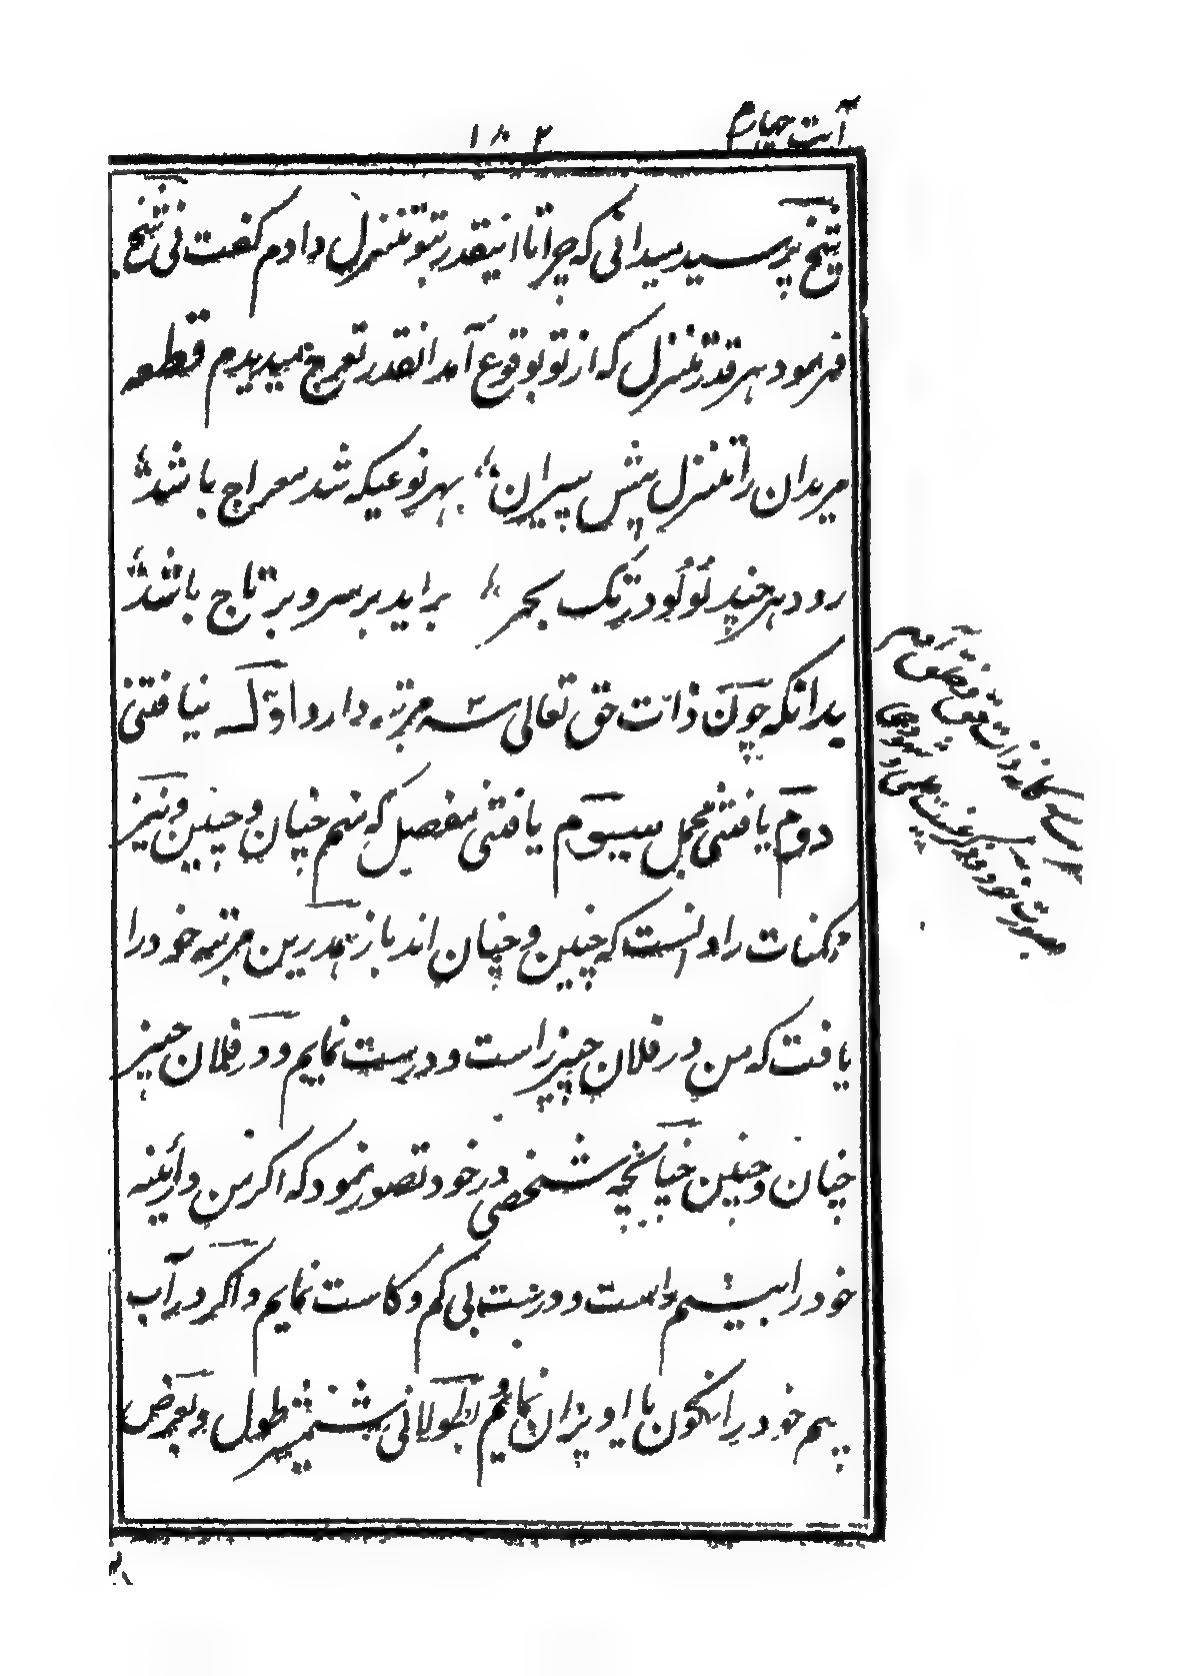 آیت چهارم
۱۸۲
شیخ پرسید میدانی که چرا ترا اینقدر بتو تنزل دادم گفت نی شیخ
فرمود هر قدر تنزل که از تو بوقوع آمد انقدر تعرج میدیدم قطعه
مریدان را تنزل پیش پیران بهر نوعیکه شد معراج باشد
رود هر چند لولو در تگ بحر براید بر سر و بر تاج باشد
بدانکه چون ذات حق تعالی سه مرتبه دارد اول نیافتنی
دوم یافتنی مجمل سیوم یافتنی مفصل که منم چنان و چنین و نیز
ممکنات را دانست که چنین و چنان اند باز همدرین مرتبه خود را
یافت که من در فلان چیز راست و درست نمایم و در فلان چیز
چنان و چنین چنانچه شخصی در خود تصور نمود که اگر من در آئینه
خود را بینم راست و درست بی کم و کاست نمایم و اگر در آب
بینم خود را نگون یا اویزان نمایم و بطولانی شمشیر طول و بعرض